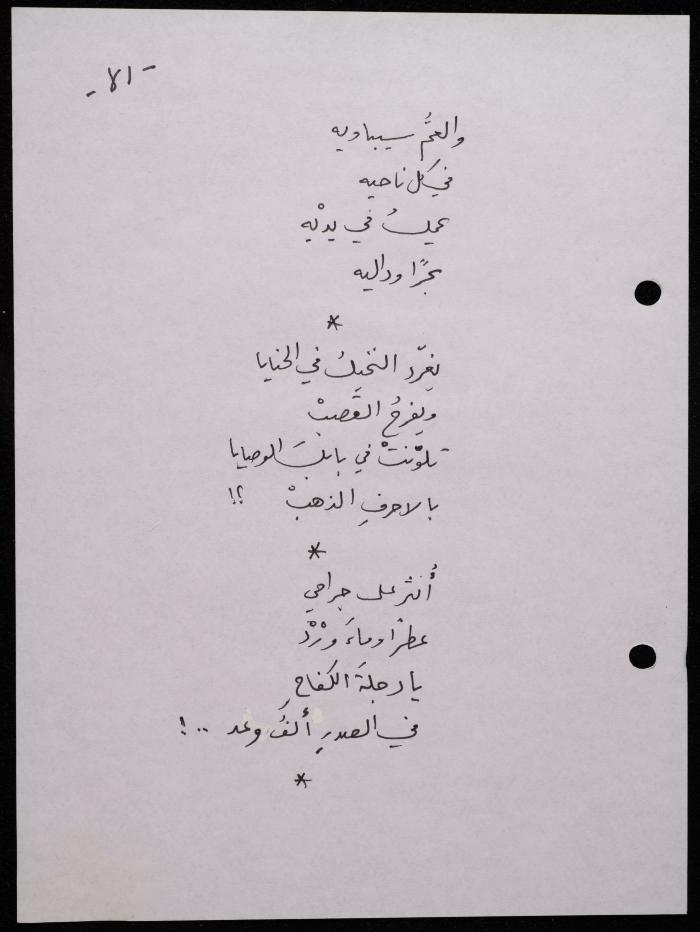 - ١٨ -
والعمُّ سيباويه
في كل ناحيه
يحيكُ في يديْه
بحرًا وداليه
*
يغرّد النخيلُ في الحنايا
ويفرحُ القَصبْ
تلوّنتْ في بابلَ الوصايا
بالاحرفِ الذهبْ ؟!
*
أُنثر على جراحي
عطرًا وماءَ ورْدْ
يا دجلةَ الكفاحِ
في الصدرِ ألفُ وعد ..!
*